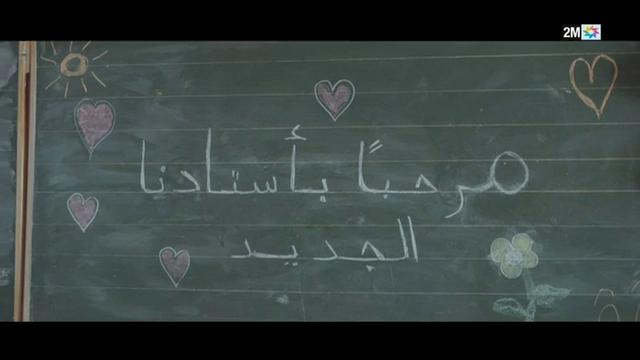 2M
مرحبًا بأستادنا
الجديد